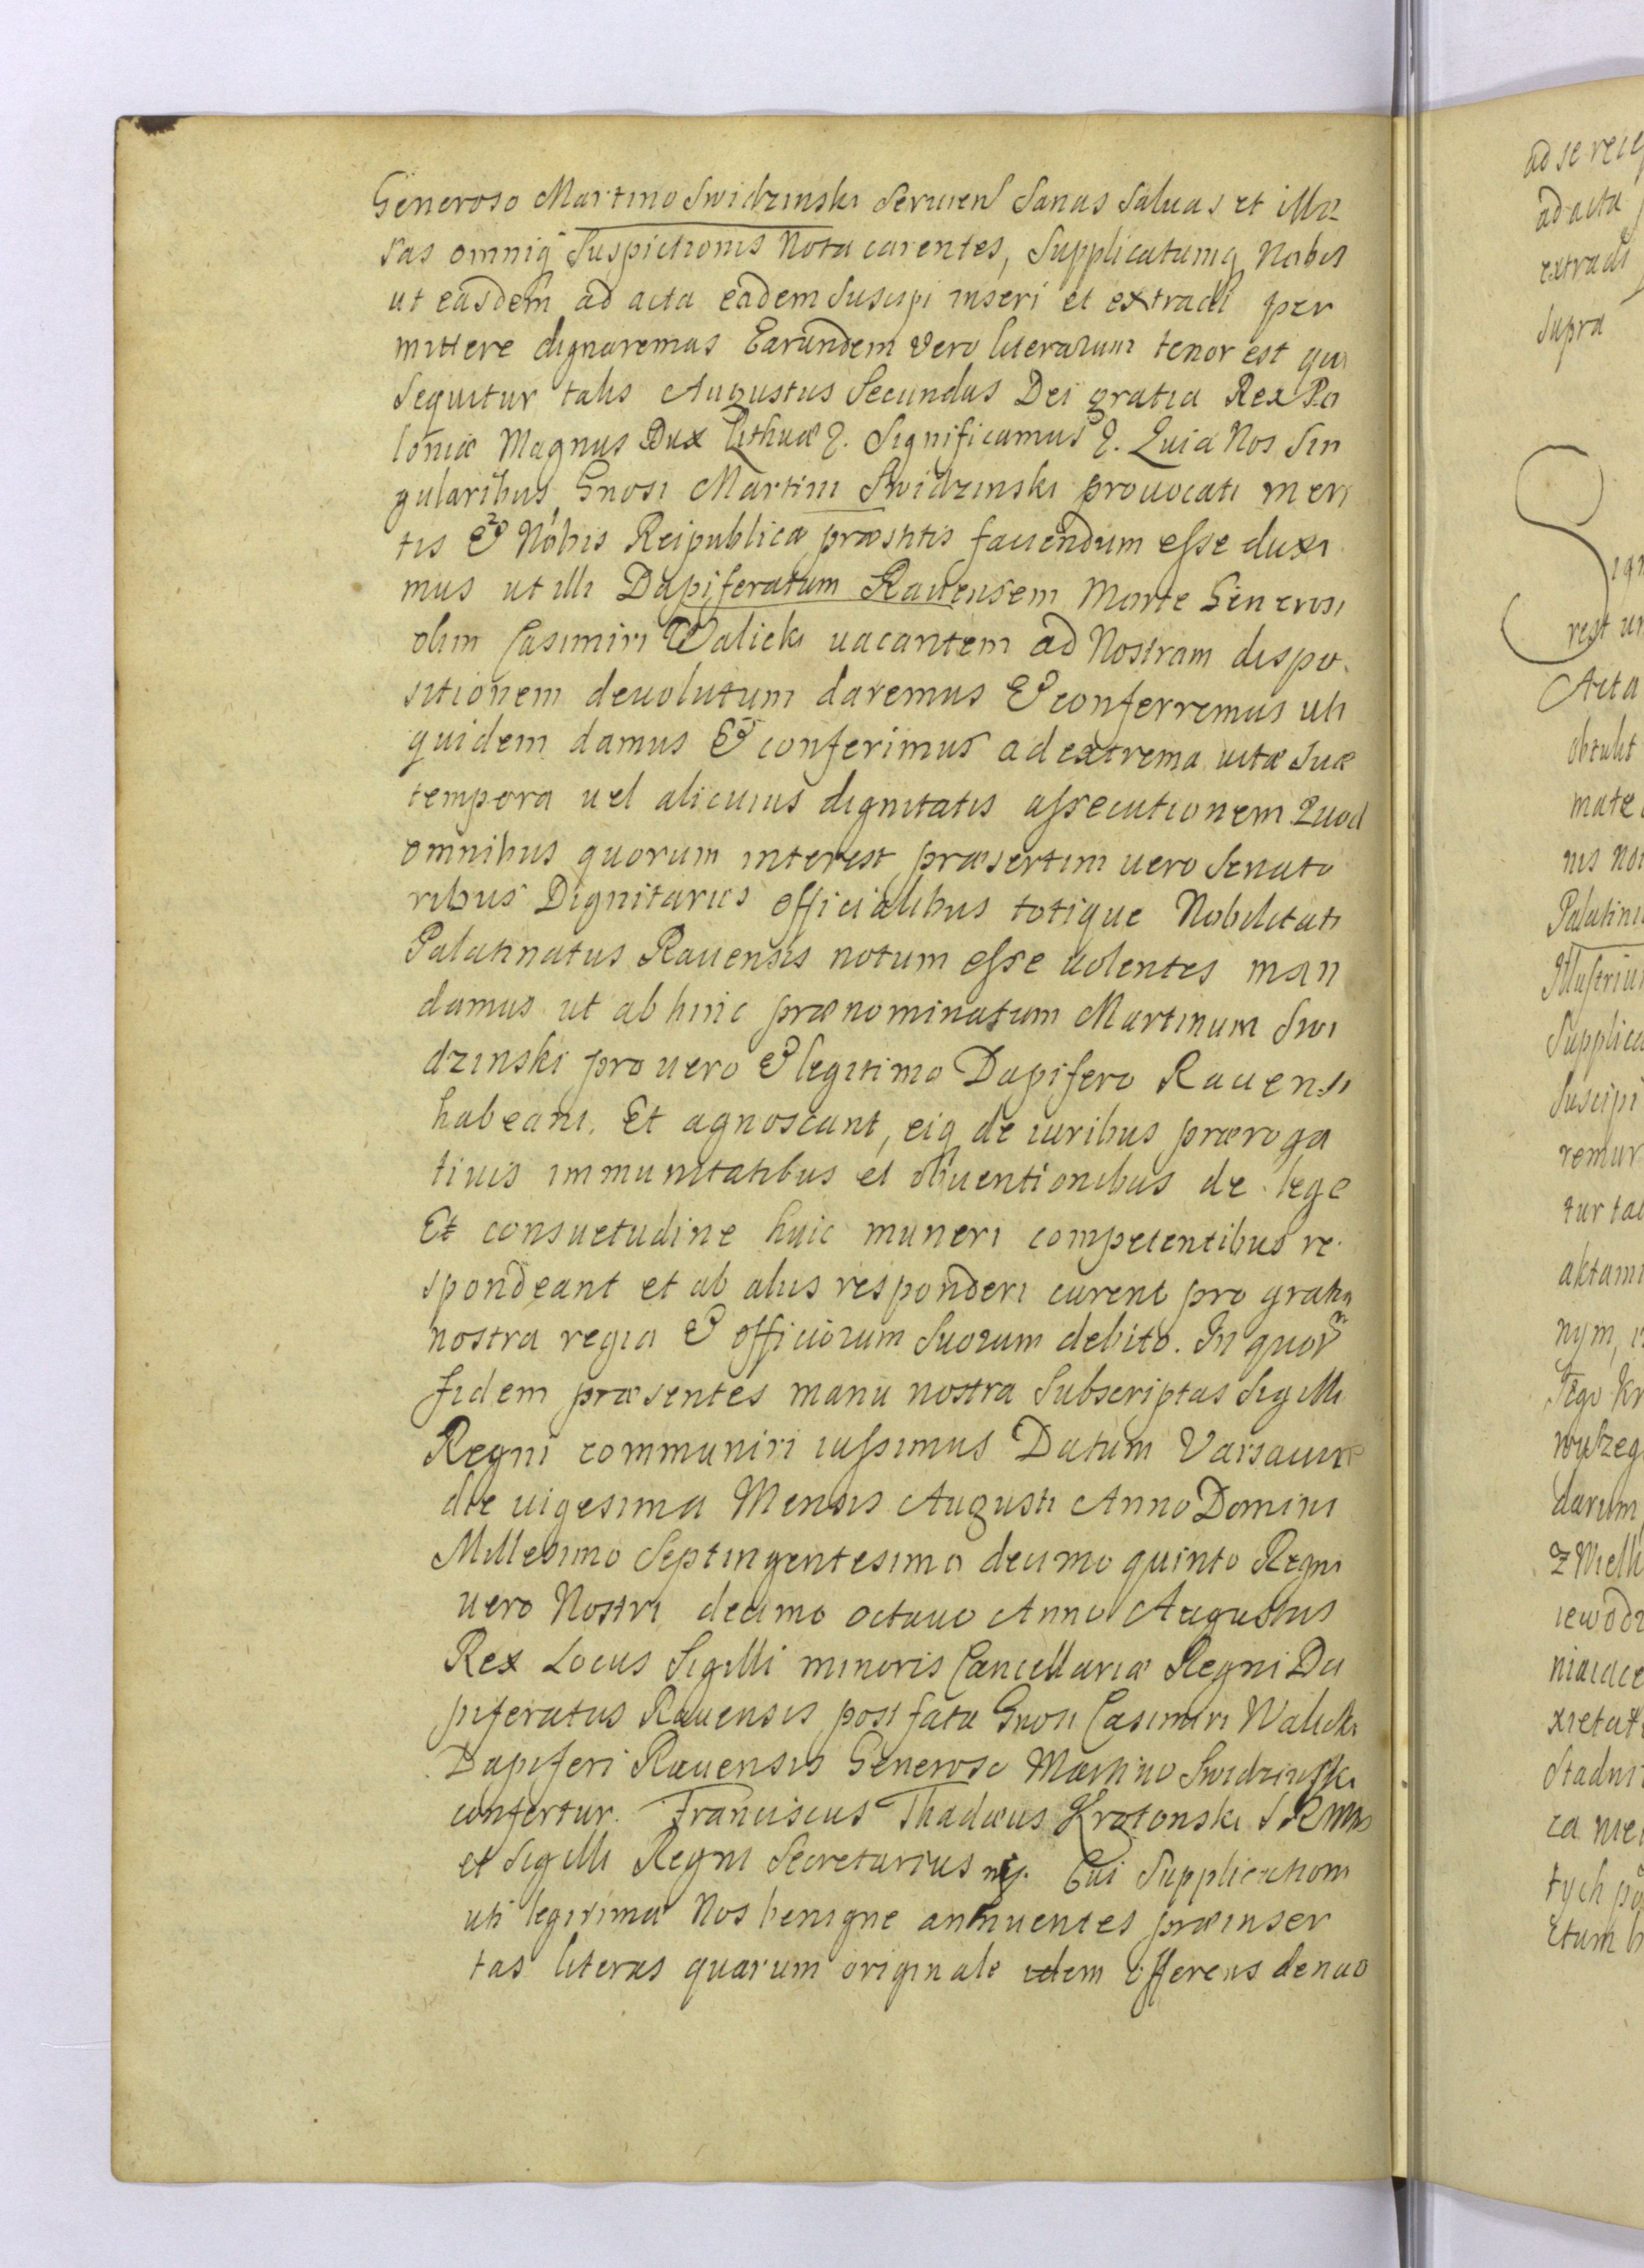 Generoso Martino Swidzinski Seruien Sanas Saluas et illæ
sas omniq Suspictionis Nota carentes, Supplicatumq Nobis
ut easdem ad acta eadem Suscipi inseri et extradi per
mittere dignaremus Earundem vero literarum tenor est qui
Sequitur talis Augustus Secundus Dei gratia Rex Po
loniæ Magnus Dux Lithuæ &. Significamus &. Quia Nos Sin
gularibus Gnosi Martini Swidzinski prouocati meri
tis & Nobis Reipublicæ præstitis fauendum esse duxi
mus ut illi Dapiferatum Rauensem Morte Generosi
olim Casimiri Walicki uacantem ad Nostram dispo
sitionem deuolutum daremus & conferremus uti
quidem damus & conferimus ad extrema uitæ Suæ
tempora uel alicuius dignitatis assecutionem Quod
omnibus quorum interest præsertim uero Senato
ribus Dignitariis officialibus totique Nobilitati
Palatinatus Rauensis notum esse uolentes man
damus ut ab hinc prænominatum Martinum Swi
dzinski pro uero & legitimo Dapifero Rauensi
habeant. Et agnoscant, eiq de iuribus præroga
tiuis immunitatibus et obuentionibus de lege
Et consuetudine huic muneri competentibus re
spondeant et ab aliis responderi curent pro gratia
nostra regia & officiorum Suorum debito. In quor
fidem præsentes manu nostra Subscriptas Sigilli
Regni communiri iussimus Datum Varsauiæ
die uigesima Mensis Augusti Anno Domini
Millesimo Septingentesimo decimo quinto Regni
uero Nostri decimo octauo Anno Augustus
Rex Locus Sigilli minoris Cancellariæ Regni Da
piferatus Rauensis post fata Gnosi Casimiri Walicki
Dapiferi Rauensis Generoso Martino Swidzinski
confertur. Franciscus Thadæus
et Sigilli Regni Secretarius mp. Cui Supplicationi
uti legitimæ Nos benigne annuentes præinser
tas literas quarum originale idem offerens denuo
ad acta
extradi
Supra
Acta
obtulit
Supplica
Suscipi
remur